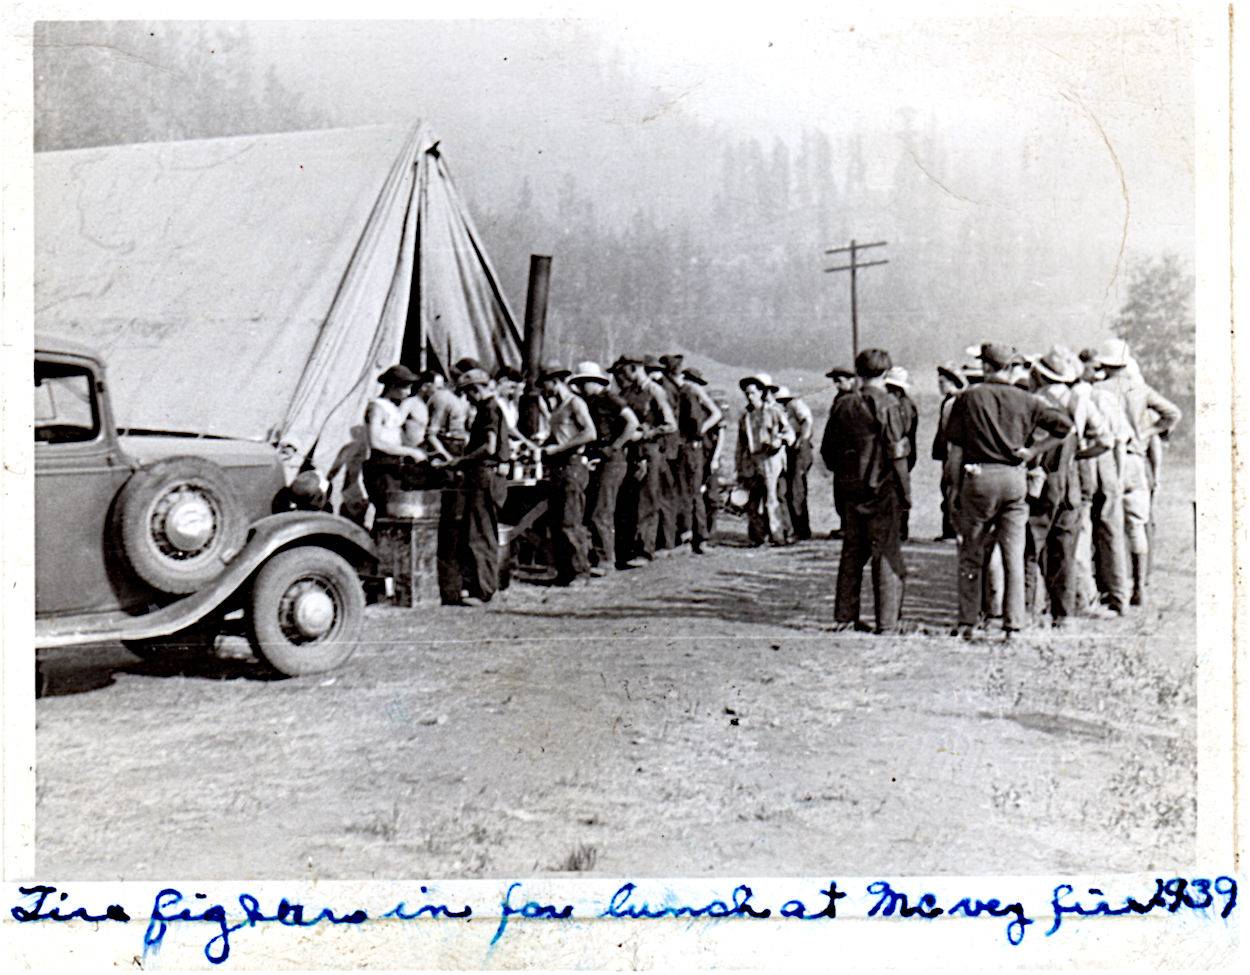 Fire fighters in for lunch at McVey fire 1939